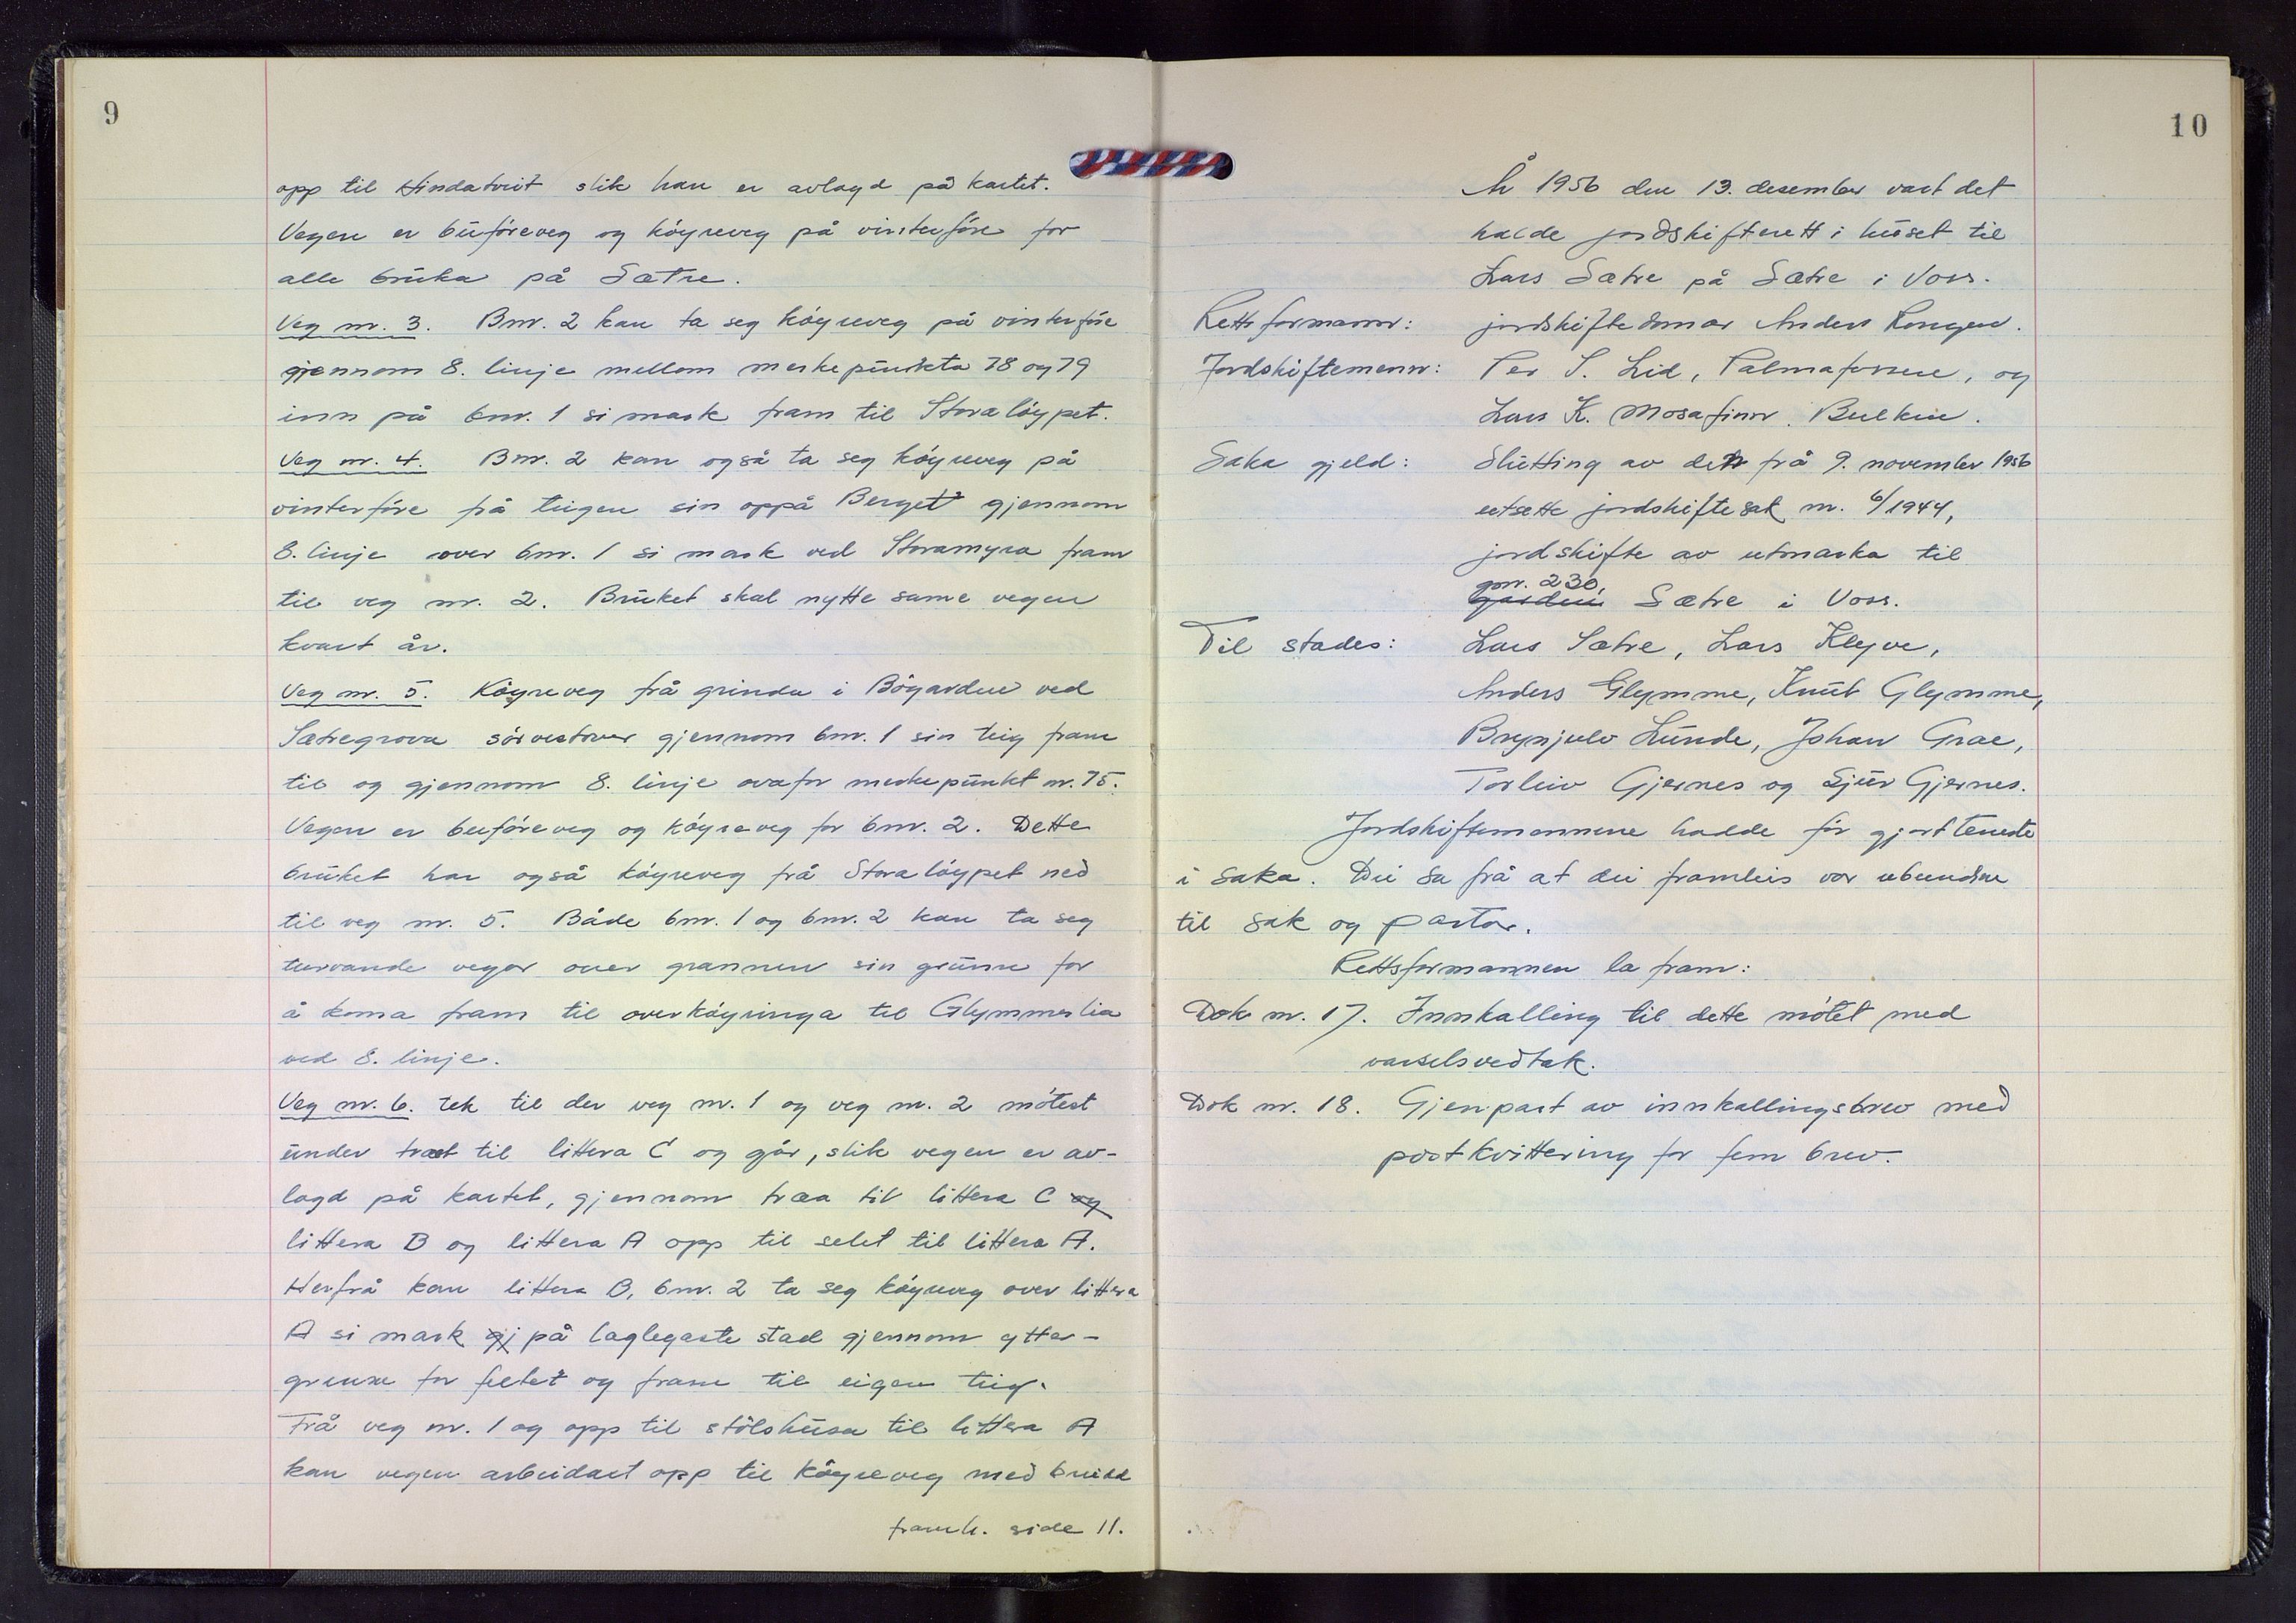 9
opp til Hindatveit slik han er avlagd på kartet.
Vegen er buföreveg og köyreveg på vinterföre for
alle bruka på Sætre.
Veg nr. 3. Bnr. 2 kan ta seg köyreveg på vinterföre
gjennom 8. linje mellom merkepunkta 78 og 79
inn på bnr. 1 si mark fram til Storalöypet.
Veg nr. 4. Bnr. 2 kan også ta seg köyreveg på
vinterföre frå teigen sin oppå Berget gjennom
8. linje over bnr. 1 si mark ved Storamyra fram
til veg nr. 2. Bruket skal nytte same vegen
kvart år.
Veg nr. 5. Köyreveg frå grinda i Bögarden ved
Sætregrova sörvestover gjennom bnr. 1 sin teig fram
til og gjennom 8. linje ovafor merkepunkt nr. 75.
Vegen er buföreveg og köyreveg for bnr. 2. Dette
bruket har også köyreveg frå Storalöypet ned
til veg nr. 5. Både bnr. 1 og bnr. 2 kan ta seg
turvande vegar over grannen sin grunn for
å koma fram til overköyringa til Glymmerlia
ved 8. linje.
Veg nr. 6. tek til der veg nr. 1 og veg nr. 2 mötest
under træet til littera C og går, slik vegen er av-
lagd på kartet, gjennom træa til littera C og
littera B og littera A opp til selet til littera A.
Herfrå kan littera B, bnr. 2 ta seg köyreveg over littera
A si mark gj på laglegaste stad gjennom ytter-
grense for feltet og fram til eigen teig.
Frå veg nr. 1 og opp til stölshusa til littera A
kan vegen arbeidast opp til köyreveg med breidd
framh. side 11.
10
År 1956 den 13. desember vart det
halde jordskifterett i huset til
Lars Sætre på Sætre i Voss.
Rettsformann: jordskiftedomar Anders Rongen.
Jordskiftemenn: Per S. Lid, Palmafossen, og
Lars K. Mosafinn, Bulken.
Saka gjeld: Slutting av den frå 9. november 1956
utsette jordskiftesak nr. 6/1944,
jordskifte av utmarka til
gnr. 230,
garden Sætre i Voss.
Til stades: Lars Sætre, Lars Kleyve,
Anders Glymme, Knut Glymme,
Brynjulv Lunde, Johan Grae,
Torleiv Gjernes og Sjur Gjernes.
Jordskiftemennene hadde för gjort teneste
i saka. Dei sa frå at dei framleis var ubundne
til sak og partar.
Rettsformannen la fram:
Dok nr. 17. Innkalling til dette mötet med
varselsvedtak.
Dok nr. 18. Gjenpart av innkallingsbrev med
postkvittering for fem brev.